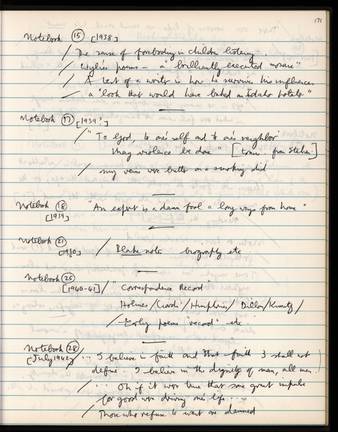 171
Notebook (15) [1938]
/ The sense of foreboding in children listening
/ Wylie's poems – a "brilliantly executed
/ A test of a writer is how he survives his influences
/ a "look that would have baked a potato"
Notebook (17) [1939?]
/ "To God, to one's self and to one's neighbor
may violence be done" [trans. from
/ my vein was better as a working
Notebook (18) "An expert is a damn fool a long ways from home"
[1939]
Notebook (21) / Blake note biography etc
[1940]
Notebook (25)
[1940-41] / Correspondence Record
Holmes / / Humphries / Dillon / Kunitz /
/ Early poems "record" etc
Notebook (28) / ... I believe in faith and that faith I shall not
[July 1942] define. I believe in the dignity of man, all men
... Oh if it were true that some great impulse
for good were driving me
/ Those who refuse to want are damned